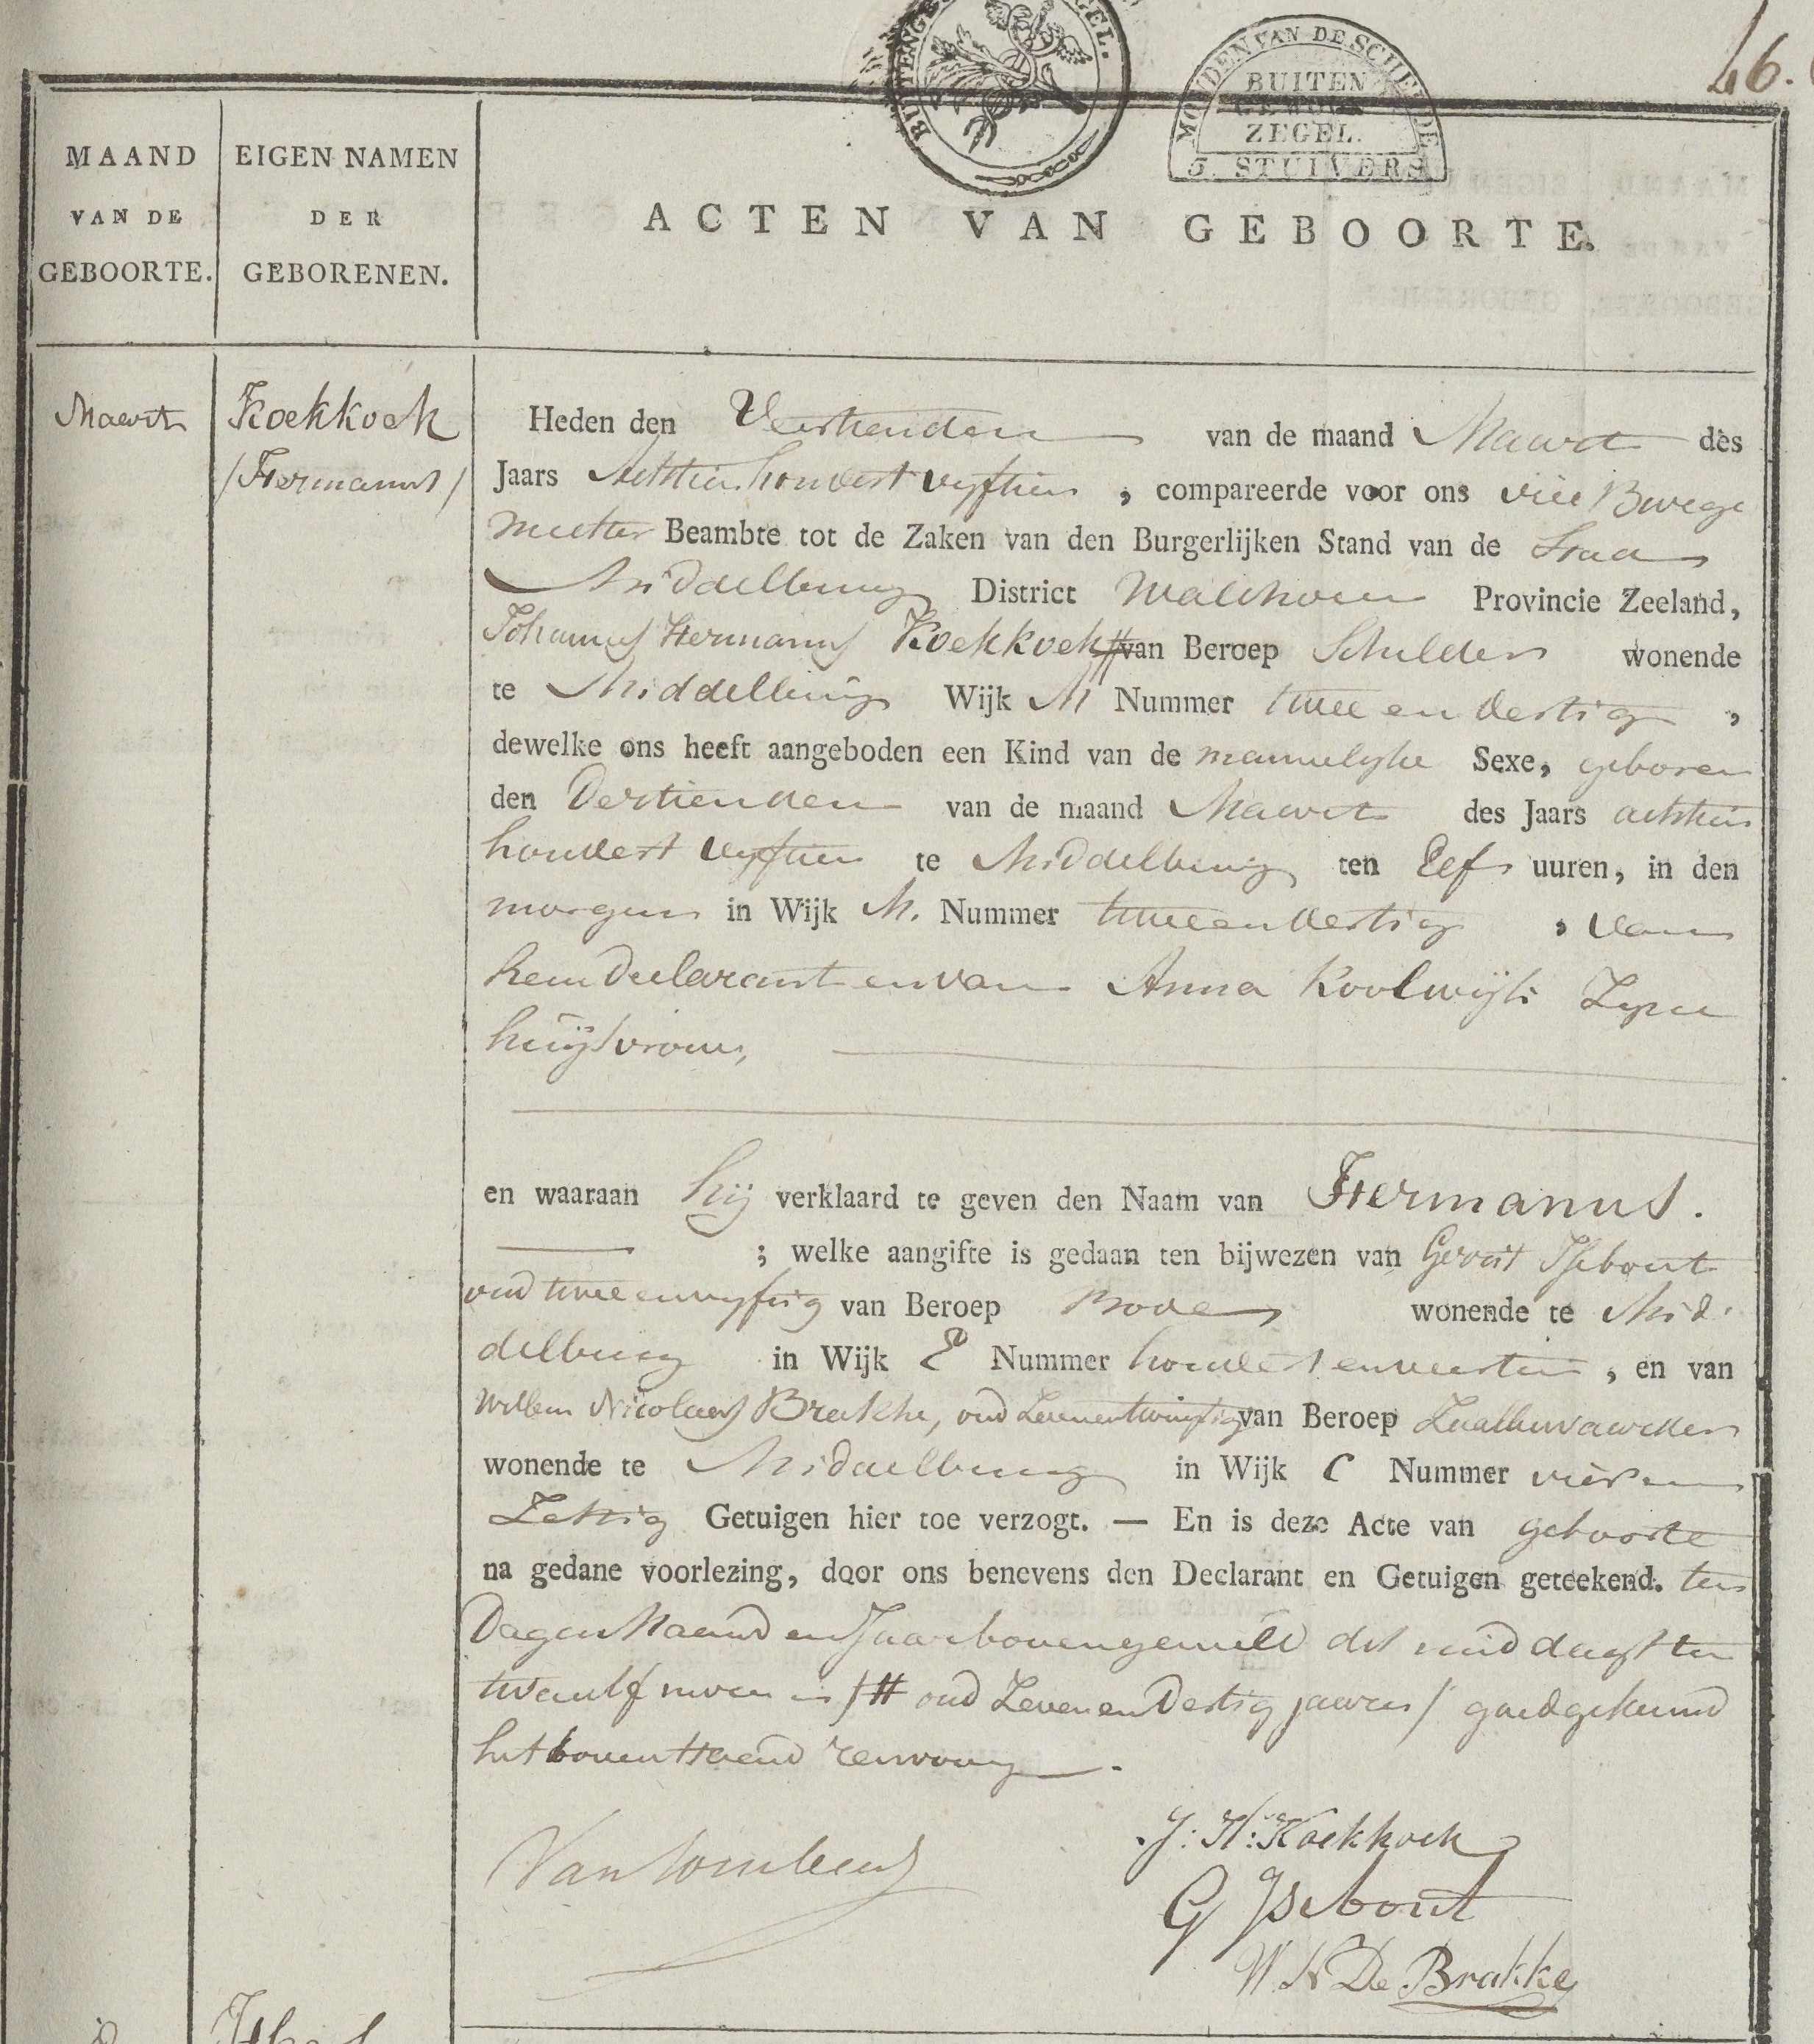 46.
BUITENGE
GEL.
MONDEN VAN DE SCHELDE
BUITEN
GEWOON
ZEGEL.
5. STUIVERS
MAAND
VAN DE
GEBOORTE.
EIGEN NAMEN
DER
GEBORENEN.
ACTEN VAN GEBOORTE.
Maart
Koekkoek
/Hermanus/
Heden den Veertienden van de maand Maart des
Jaars Achttien hondert vyftien, compareerde voor ons vice Burge
meester Beambte tot de Zaken van den Burgerlijken Stand van de Stad
Middelburg District Walcheren Provincie Zeeland,
Johannes Hermanus Koekkoek # van Beroep Schilder wonende
te Middelburg Wijk M Nummer twee en dertig,
dewelke ons heeft aangeboden een Kind van de mannelyke Sexe, geboren
den Dertienden van de maand Maart des Jaars achttien
hondert vyftien te Middelburg ten Elf uuren, in den
morgen in Wijk M. Nummer twee en dertig, van
hem declarant en van Anna Koolwijk Zyne
huijsvrouw,
en waaraan hij verklaard te geven den Naam van Hermanus.
; welke aangifte is gedaan ten bijwezen van Gerrit IJsebout
oud twee en vyftig van Beroep Bode wonende te Mid
delburg in Wijk E Nummer hondert en veertien, en van
Willem Nicolaas Brakke, oud Zeven en twintig van Beroep Zaalbewaarder
wonende te Middelburg in Wijk C Nummer vier en
Zestig Getuigen hier toe verzogt. — En is deze Acte van geboorte
na gedane voorlezing, door ons benevens den Declarant en Getuigen geteekend. ten
Dage Maand en Jaar bovengemeld des middags ten
twaalf uuren /# oud Zeven en Dertig jaaren/ goedgekeurd
het bovenstaend renvooy.
J: H: Koekkoek
G IJsebout
W N De Brakke